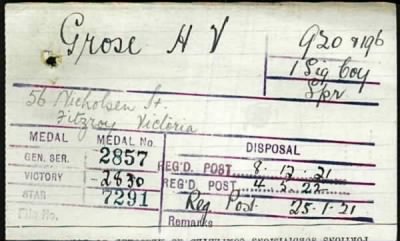 Grose H V
920 & 196
1 Sig Coy
Spr
56 Nicholson St.
Fitzroy Victoria
MEDAL MEDAL No. DISPOSAL
GEN. SER. 2857 REG'D. POST 8.12.21
VICTORY 2830 REG'D. POST 4.3.22
STAR 7291 Reg Post 25-1-21
File No. Remarks